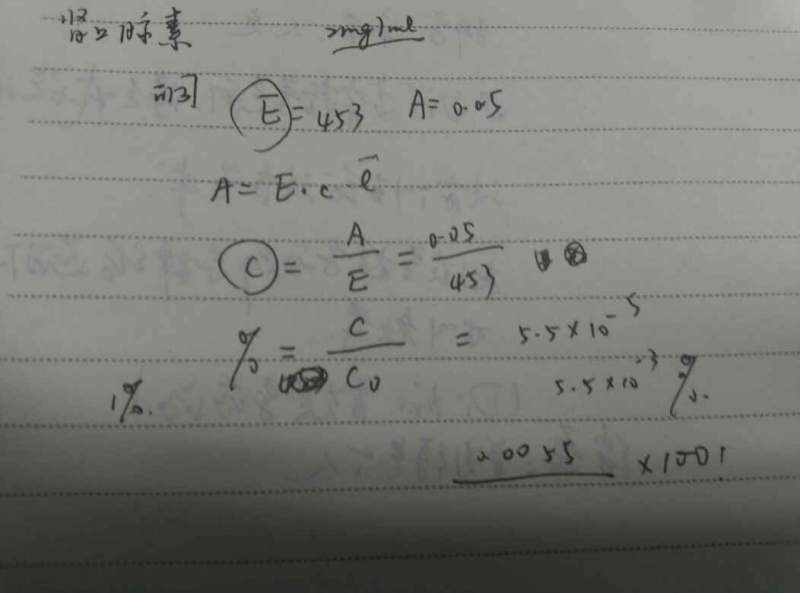 肾上腺素 2mg/ml
酮 E = 453 A = 0.05
A = E · c · l
C = A/E = 0.05/453
% = C/C0 = 5.5×10⁻⁵
1%. 5.5×10⁻³ %.
0.0055 ×100